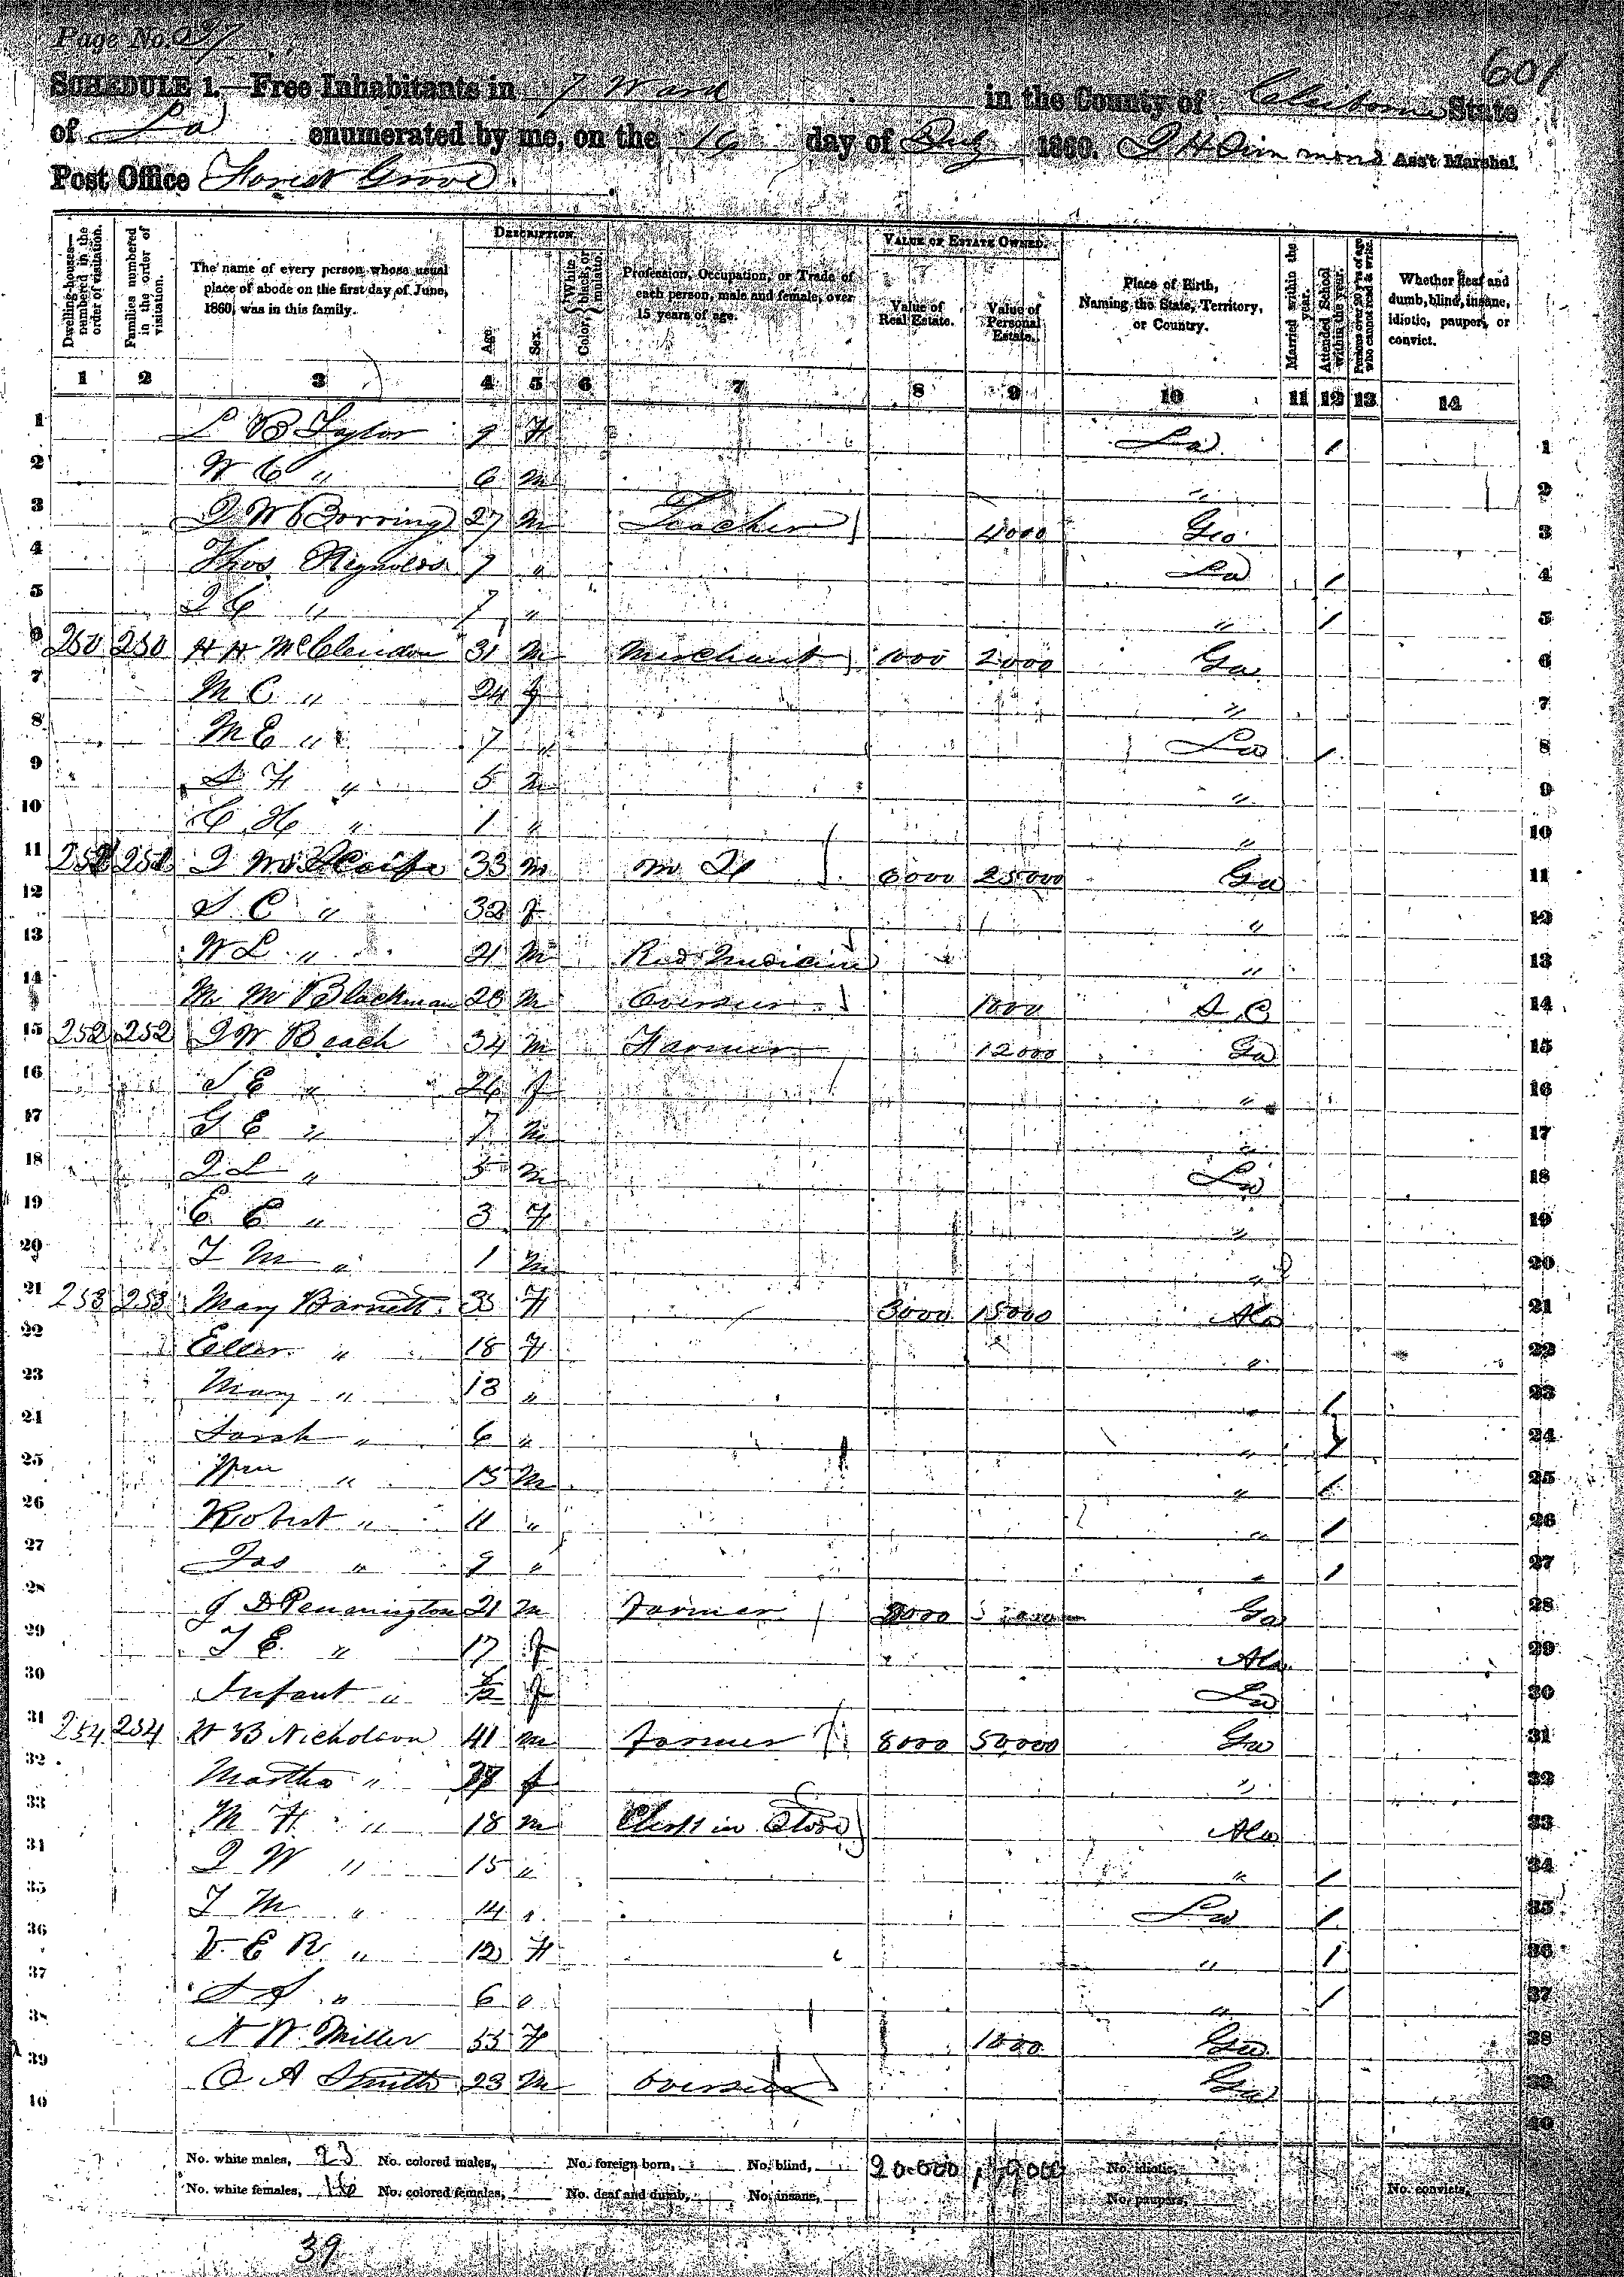 Page No. 87
601
SCHEDULE 1.—Free Inhabitants in 7 Ward in the County of Claiborne State
of La enumerated by me, on the 16 day of July 1860. Ass't Marshal.
Post Office Forest Grove
Dwelling-houses—numbered in the order of visitation.
Families numbered in the order of visitation.
The name of every person whose usual place of abode on the first day of June, 1860, was in this family.
DESCRIPTION.
Age.
Sex.
Color, White, black, or mulatto.
Profession, Occupation, or Trade of each person, male and female, over 15 years of age.
VALUE OF ESTATE OWNED.
Value of Real Estate.
Value of Personal Estate.
Place of Birth, Naming the State, Territory, or Country.
Married within the year.
Attended School within the year.
Persons over 20 y'rs of age who cannot read & write.
Whether deaf and dumb, blind, insane, idiotic, pauper, or convict.
1 2 3 4 5 6 7 8 9 10 11 12 13 14
1 L B Taylor 9 F La / 1
2 W C " 6 M " 2
3 27 M Teacher 4000 Geo 3
4 Thos Reynolds 7 " La / 4
5 J C " 7 " " / 5
6 250 250 H H McClendon 31 M Merchant 1000 2000 Ga 6
7 M C " 24 f " 7
8 M E " 7 " La / 8
9 S H " 5 M " 9
10 C H " 1 " " 10
11 251 251 33 M M D 6000 25000 Ga 11
12 S C " 32 f " 12
13 W L " 21 M Red Medicine " 13
14 M M Blackman 28 M Overseer 1000 S C 14
15 252 252 J W Beach 34 M Farmer 12000 Ga 15
16 S E " 26 f " 16
17 G E " 7 M " 17
18 J L " 5 M La 18
19 C C " 3 F " 19
20 J M " 1 M " 20
21 253 253 Mary Barnett 35 F 3000 15000 Ala 21
22 Ellen " 18 F " 22
23 Mary " 13 " " / 23
24 Sarah " 6 " " / 24
25 Wm " 15 M " / 25
26 Robert " 11 " " / 26
27 Jas " 9 " " / 27
28 J D Pennington 21 M Farmer Ga 28
29 J E " 17 f Ala 29
30 Infant " f La 30
31 254 254 H B Nicholson 41 M Farmer 8000 50000 Ga 31
32 Martha " f " 32
33 M H " 18 M Clerk in Store Ala 33
34 J W " 15 " " / 34
35 J M " 14 " La / 35
36 V E R " 12 F " / 36
37 S S " 6 " " / 37
38 N W Miller 55 F 1000 Ga 38
39 O A Smith 23 M Overseer Ga 39
40 40
No. white males, 23 No. colored males, No. foreign born, No. blind, 20.000 No. idiotic,
No. white females, 16 No. colored females, No. deaf and dumb, No. insane, No. paupers, No. convicts,
39